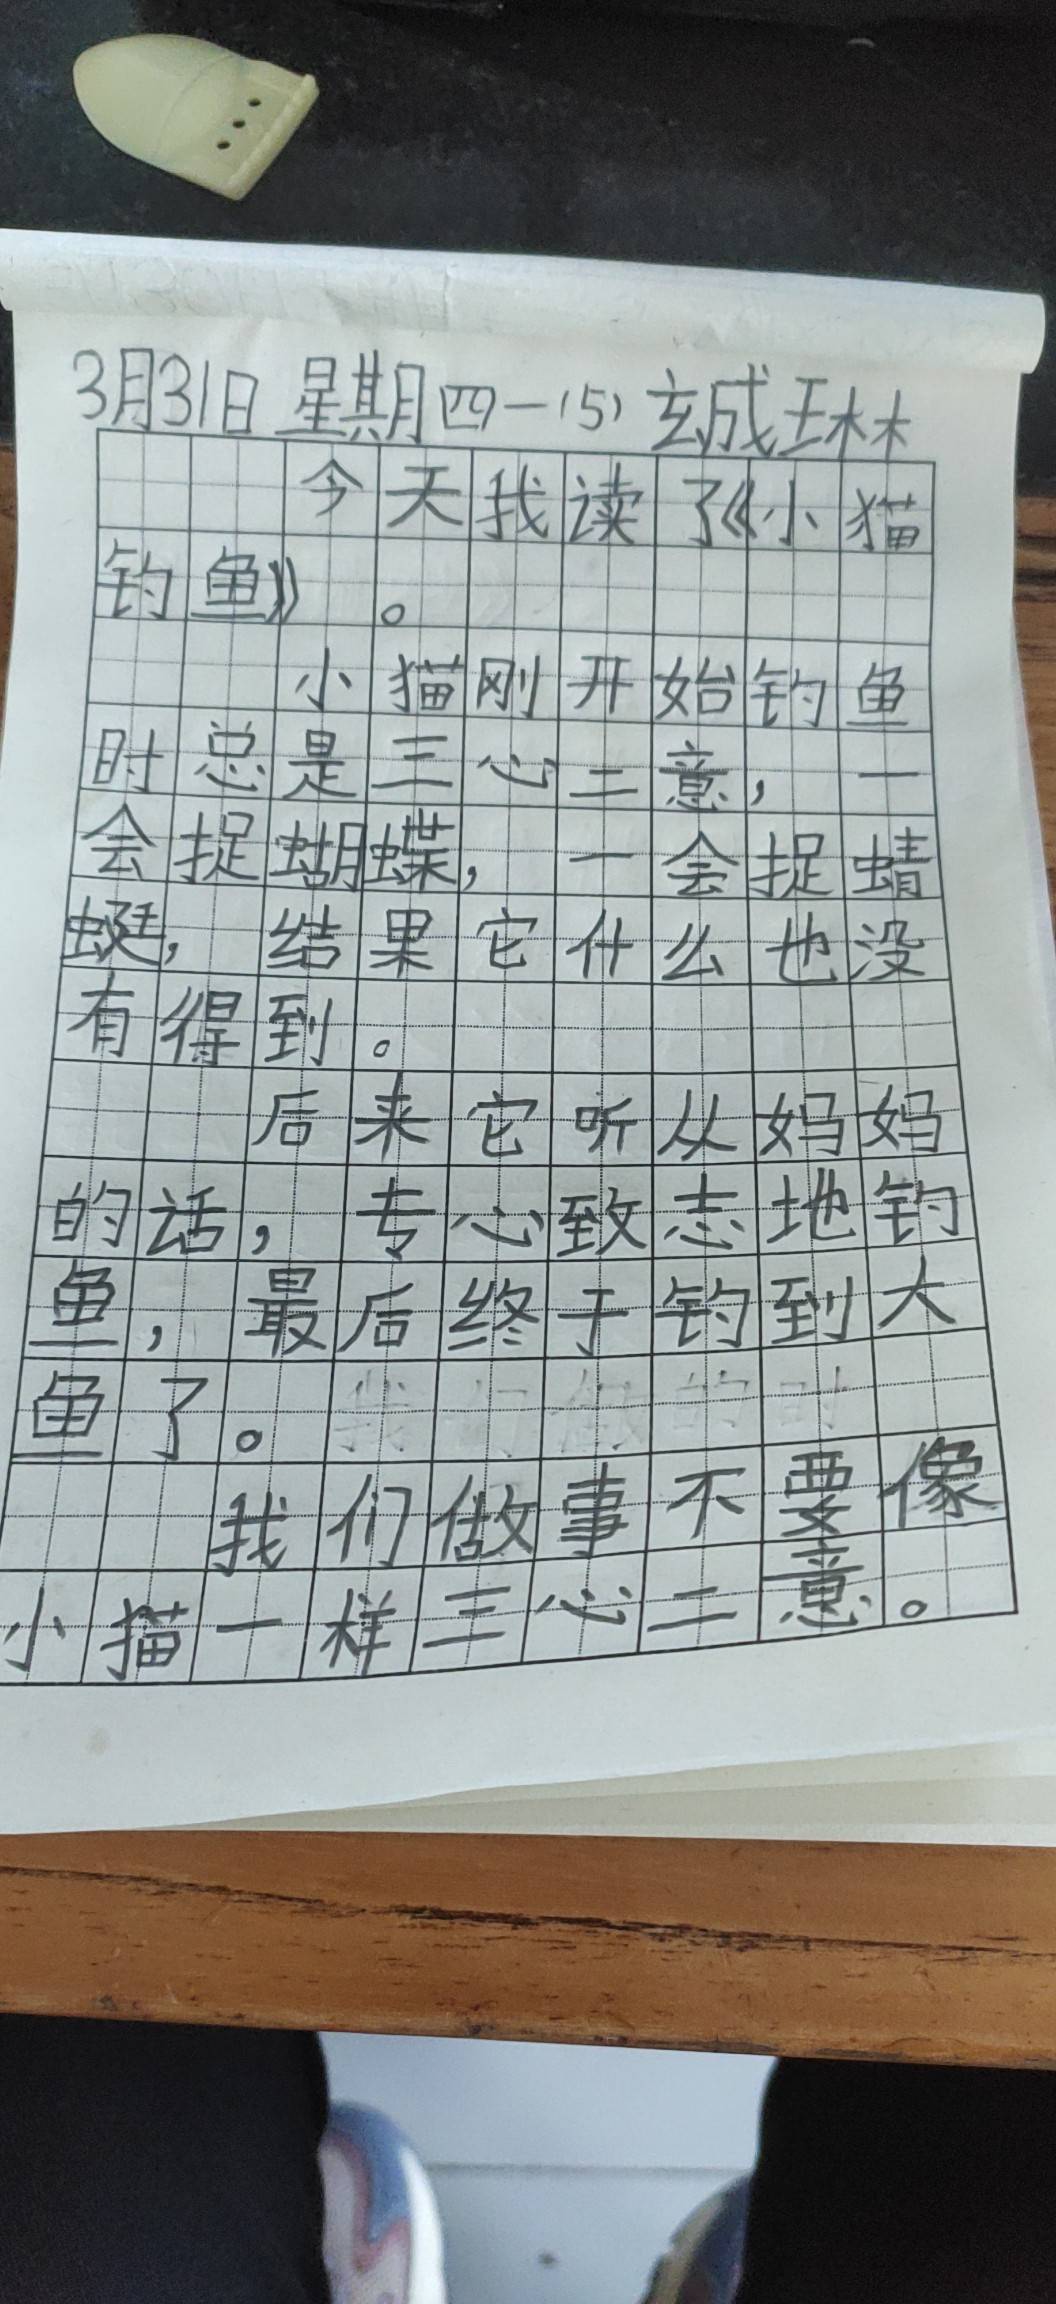 3月31日 星期四 一(5) 玄成琳
今天我读了《小猫
钓鱼》。
小猫刚开始钓鱼
时总是三心二意，一
会捉蝴蝶，一会捉蜻
蜓，结果它什么也没
有得到。
后来它听从妈妈
的话，专心致志地钓
鱼，最后终于钓到大
鱼了。
我们做事不要像
小猫一样三心二意。